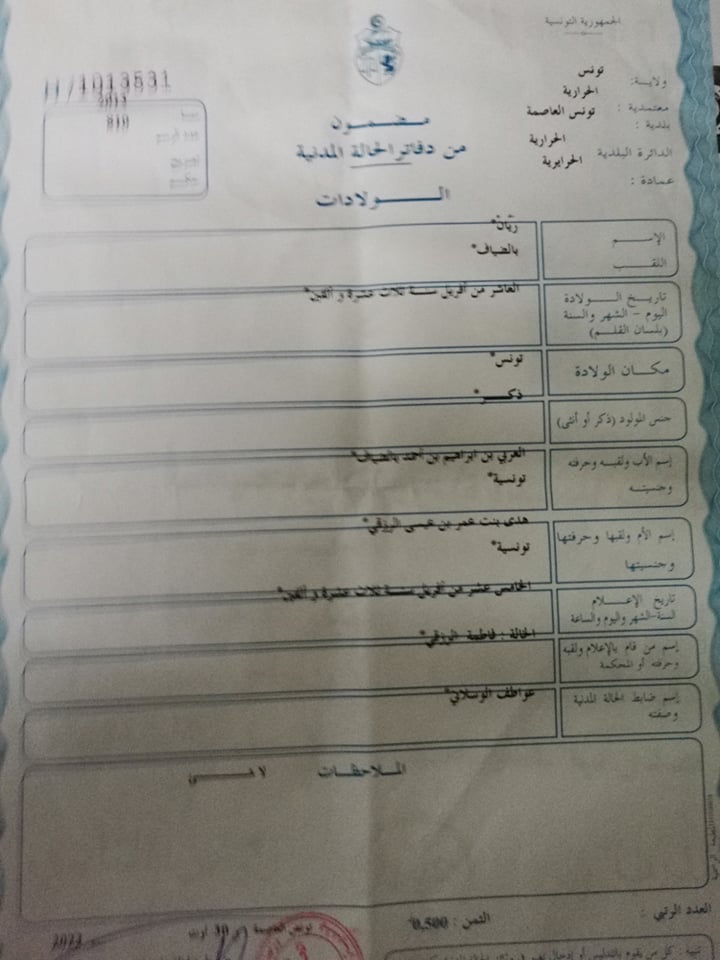 الجمهورية التونسية
ولاية: تونس
معتمدية : الحرارية
بلدية : تونس العاصمة
الدائرة البلدية الحرارية
عمادة : الحرايرية
11/1013531
2013
810
مضمون
من دفاتر الحالة المدنية
الولادات
الإسم ريّان*
اللقب بالضياف*
تاريخ الولادة العاشر من أفريل سنة ثلاث عشرة و ألفين*
اليوم - الشهر والسنة
(بلسان القلم)
مكان الولادة تونس*
جنس المولود (ذكر أو أنثى) ذكر*
إسم الأب ولقبه وحرفته العربي بن ابراهيم بن أحمد بالضياف*
وجنسيته تونسية*
إسم الأم ولقبها وحرفتها هدى بنت عمر بن عيسى الرزقي*
وجنسيتها تونسية*
تاريخ الإعلام الخامس عشر من أفريل سنة ثلاث عشرة و ألفين*
السنة-الشهر واليوم والساعة
إسم من قام بالإعلام ولقبه الخالة : فاطمة الرزقي*
وحرفته أو المحكمة
إسم ضابط الحالة المدنية عواطف الوسلاتي*
وصفته
الملاحظات لا شيء
العدد الرتبي :
الثمن : 0,500*
30 أوت
تنبيه : كل من يقوم